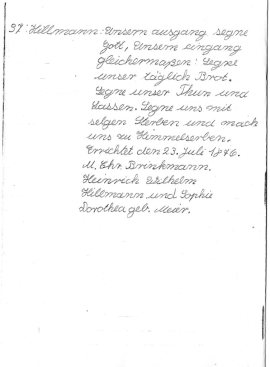 37. Hillmann: Unsern ausgang segne
Gott, Unsern eingang
gleichermaßen: Segne
unser täglich Brot.
Segne unser Thun und
Lassen. Segne uns mit
selgen Sterben und mach
uns zu Himmelserben.
Errichtet den 23. Juli 1846.
M. Chr. Brinkmann.
Heinrich Wilhelm
Hillmann und Sophie
Dorothea geb. Meier.